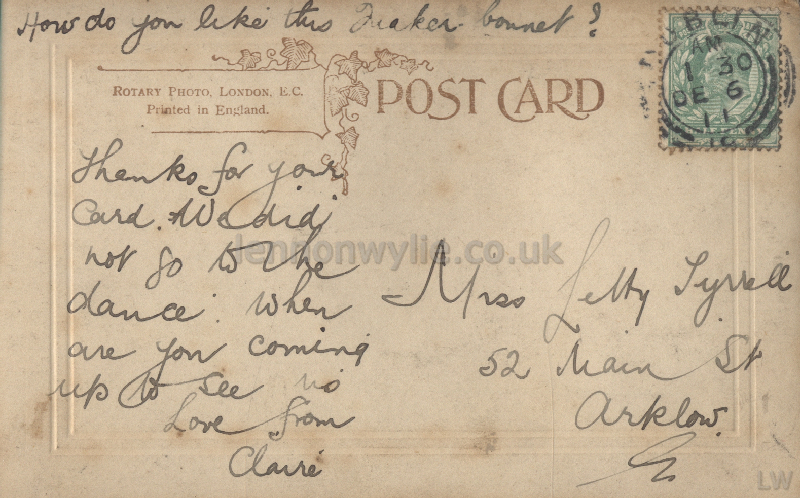 How do you like this Quaker bonnet?
ROTARY PHOTO, LONDON, E.C.
Printed in England.
POST CARD
DUBLIN
AM
1 30
DE 6
11
Thanks for your
Card. We did
not go to the
dance. When
are you coming
up to see us
Love from
Claire
Miss Letty Tyrrell
52 Main St
Arklow
lennonwylie.co.uk
LW